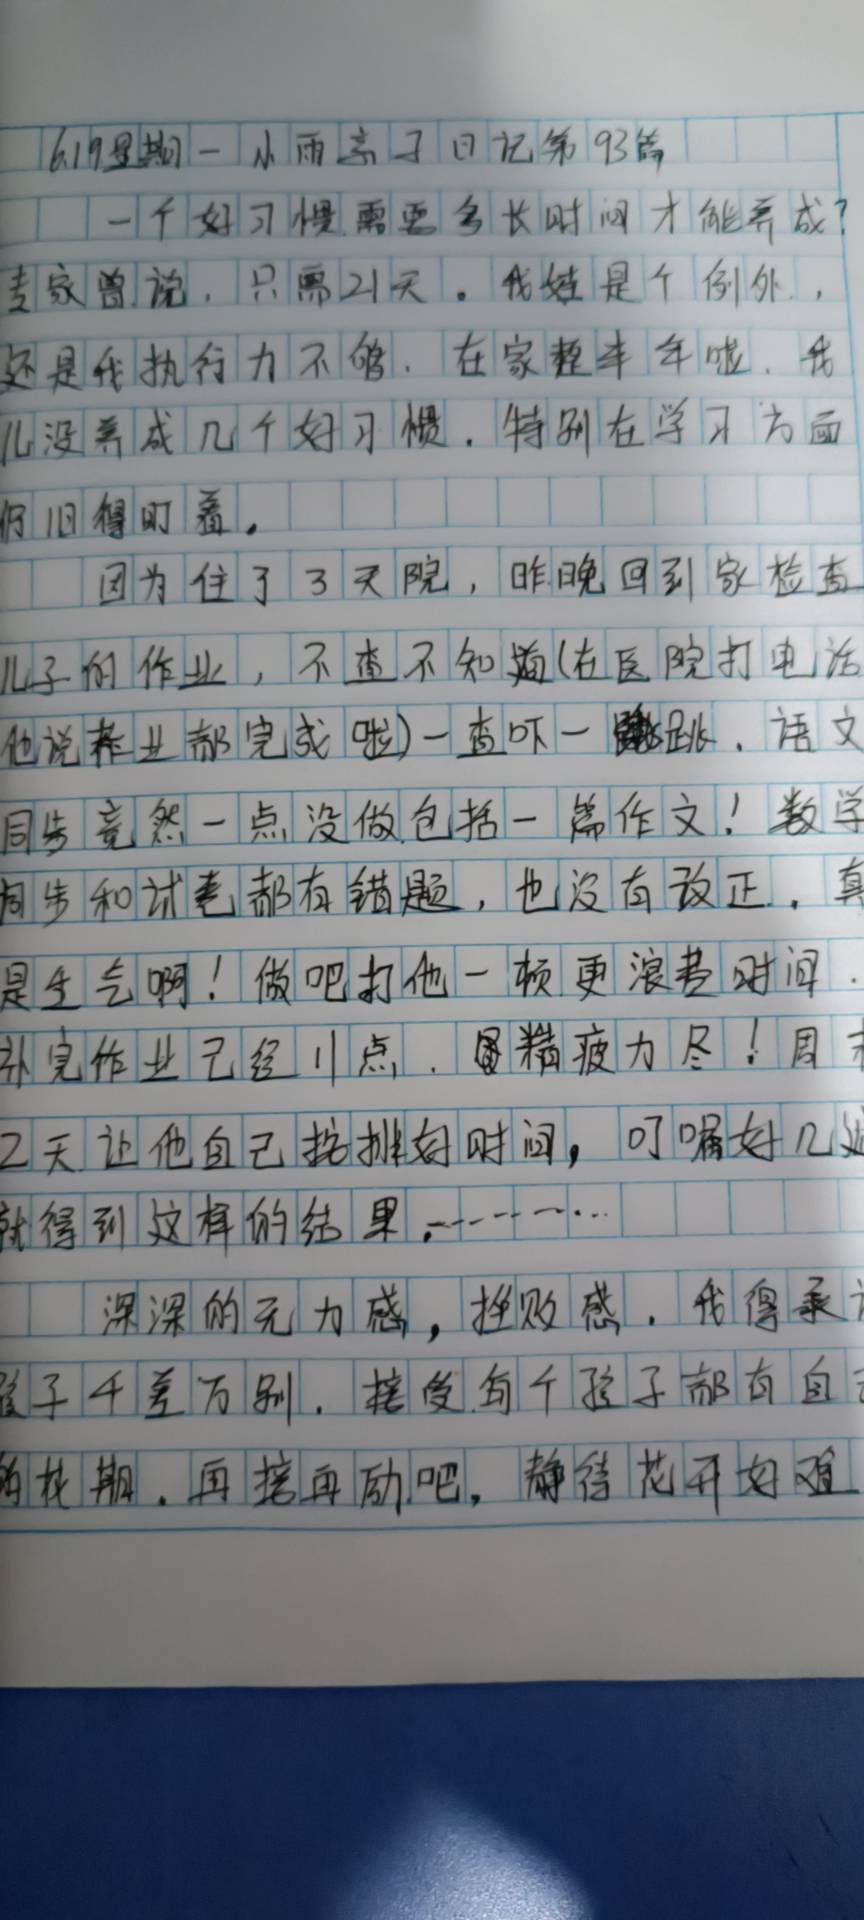 6.19星期一 小雨亲子日记第93篇
一个好习惯需要多长时间才能养成?
专家曾说,只需21天。我娃是个例外,
还是我执行力不够.在家整半年啦.我
儿没养成几个好习惯.特别在学习方面
仍旧得盯着。
因为住了3天院,昨晚回到家检查
儿子的作业,不查不知道(在医院打电话
他说作业都完成啦)一查吓一跳.语文
同步竟然一点没做包括一篇作文!数学
同步和试卷都有错题,也没有改正.真
是生气啊!做吧打他一顿更浪费时间.
补完作业已经11点.精疲力尽!周末
2天让他自己按排好时间,叮嘱好几遍
就得到这样的结果.………
深深的无力感,挫败感.我得承认
孩子千差万别.接受每个孩子都有自己
的花期.再接再励吧,静待花开好难